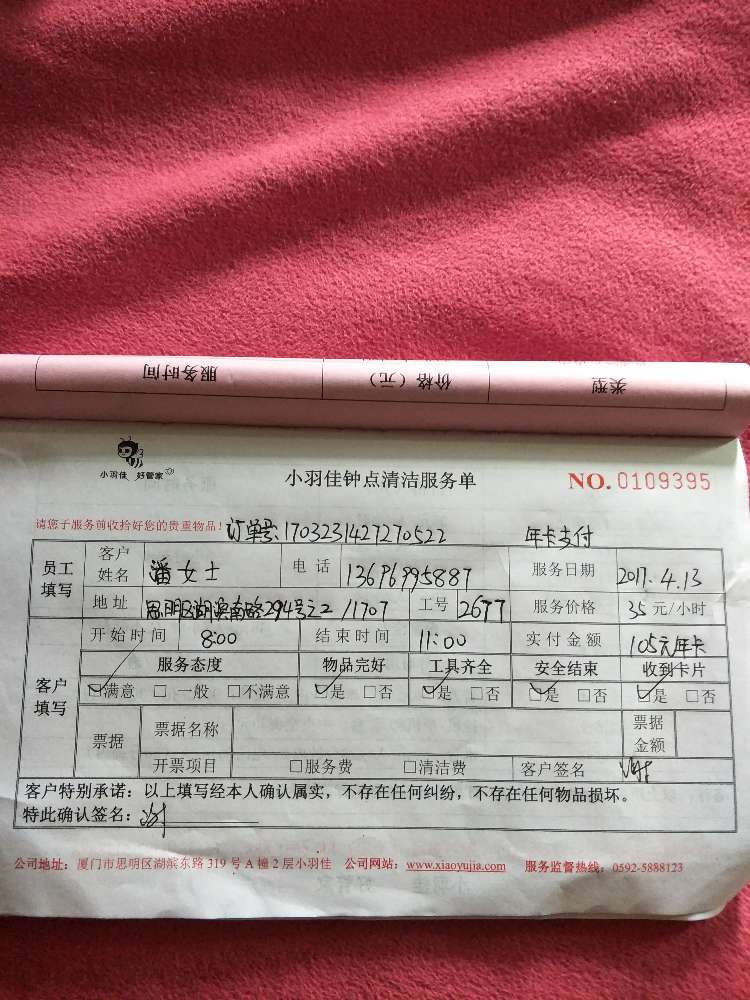 服务时间 价格（元） 类型
小羽佳 好管家
小羽佳钟点清洁服务单 NO.0109395
请您于服务前收拾好您的贵重物品！ 订单号:1703231427270522 年卡支付
员工填写 客户姓名 潘女士 电话 13696995887 服务日期 2017.4.13
地址 思明区湖滨南路294号之2/1707 工号 2677 服务价格 35元/小时
客户填写 开始时间 8:00 结束时间 11:00 实付金额 105元年卡
服务态度 物品完好 工具齐全 安全结束 收到卡片
☑满意 □一般 □不满意 ☑是 □否 ☑是 □否 ☑是 □否 ☑是 □否
票据 票据名称 票据金额
开票项目 □服务费 □清洁费 客户签名
客户特别承诺：以上填写经本人确认属实，不存在任何纠纷，不存在任何物品损坏。
特此确认签名：
公司地址：厦门市思明区湖滨东路319号A幢2层小羽佳 公司网站：www.xiaoyujia.com 服务监督热线：0592-5888123